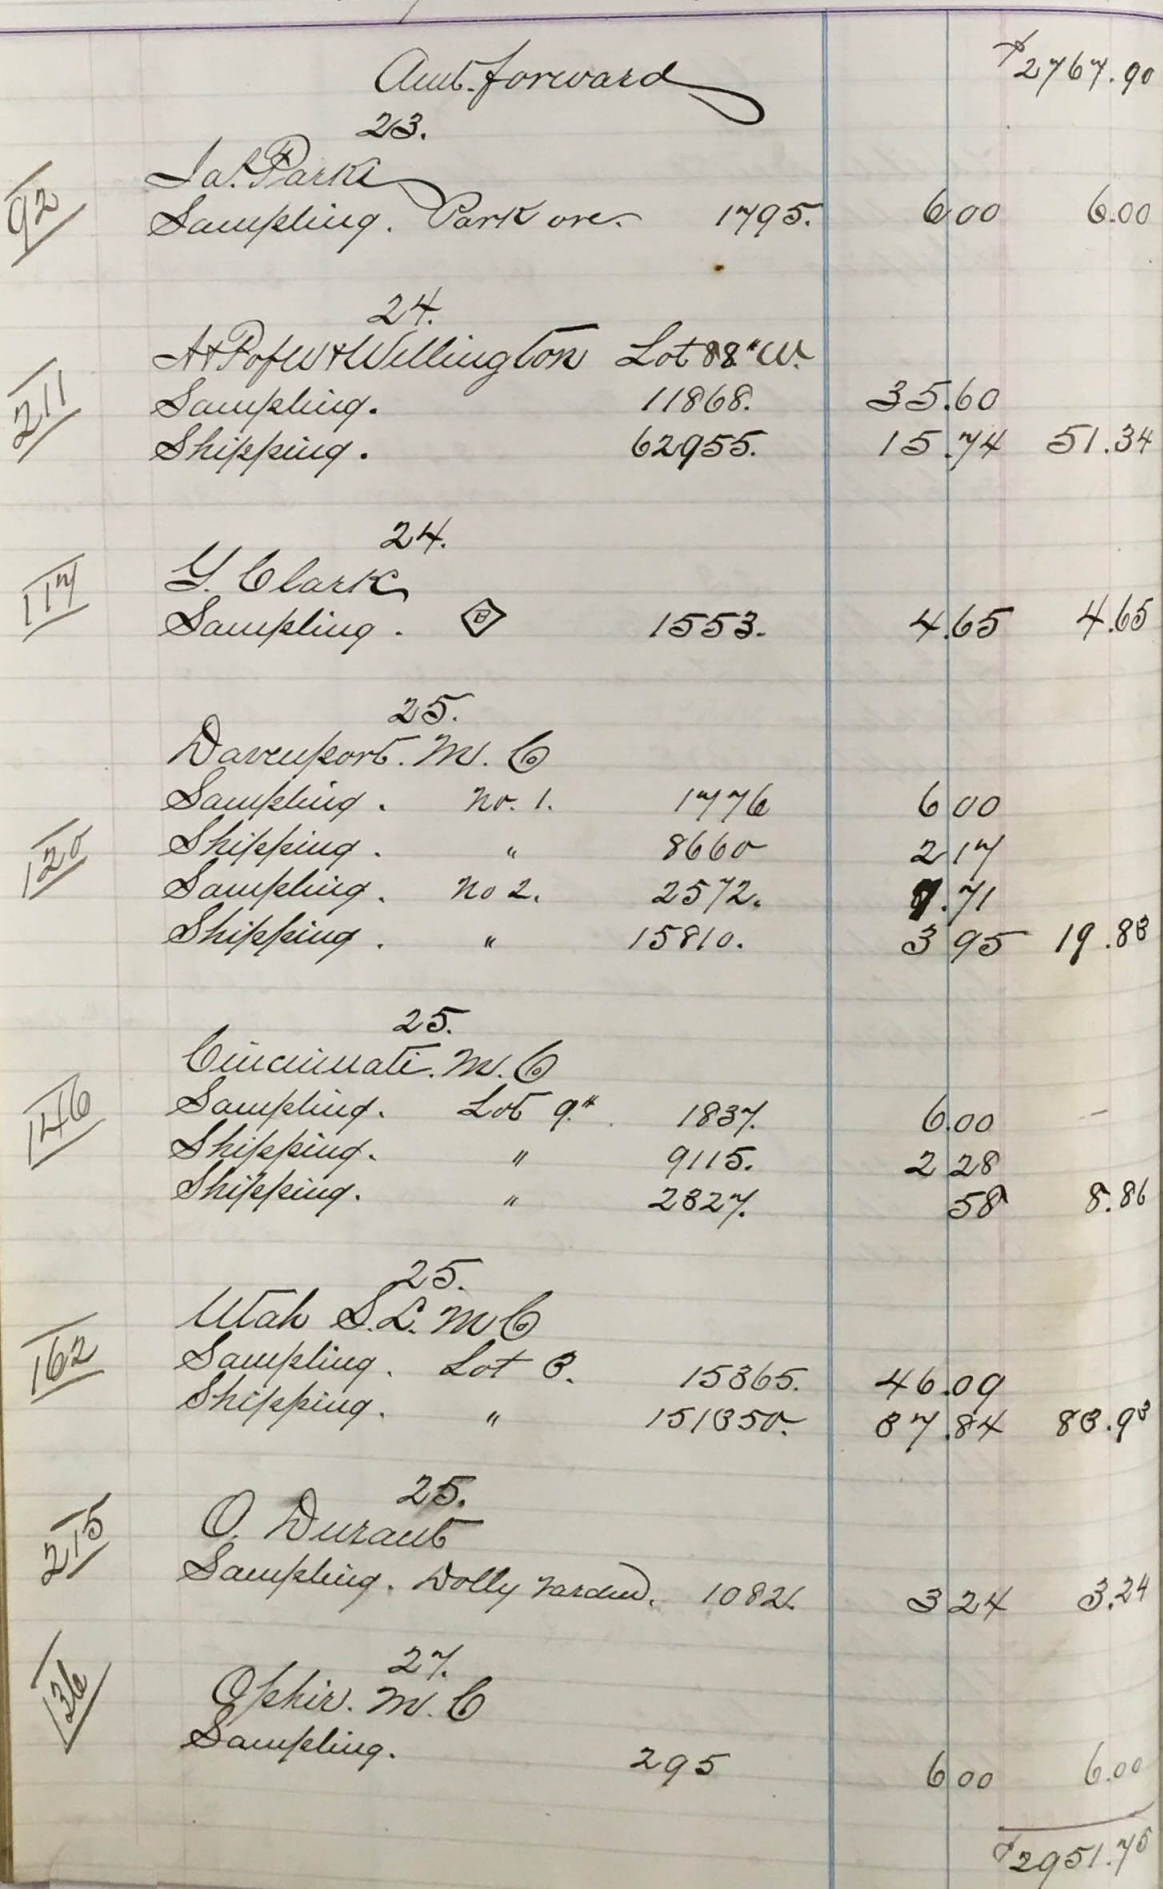 Amt. forward $2767.90
23.
Jas. Park
92 Sampling. Park ore. 1795. 6.00 6.00
24.
A+P of W+Wellington Lot 88 " W.
211 Sampling. 11868. 35.60
Shipping. 62955. 15.74 51.34
24.
117 G. Clark
Sampling. B 1553. 4.65 4.65
25.
Davenport. M. Co
Sampling. No. 1. 1776 6 00
120 Shipping. " 8660 2 17
Sampling. No 2. 2572. 7.71
Shipping. " 15810. 3 95 19.83
25.
Cincinnati. M. Co
146 Sampling. Lot 9." 1837. 6.00
Shipping. " 9115. 2 28
Shipping. " 2327. 58 8.86
25.
Utah S. L. M Co
162 Sampling. Lot 3. 15365. 46.09
Shipping. " 151350. 37.84 83.93
25.
215 O. Durant
Sampling. Dolly Varden. 1082. 3 24 3.24
27.
136 Ophir. M. Co
Sampling. 295 6 00 6.00
$2951.75